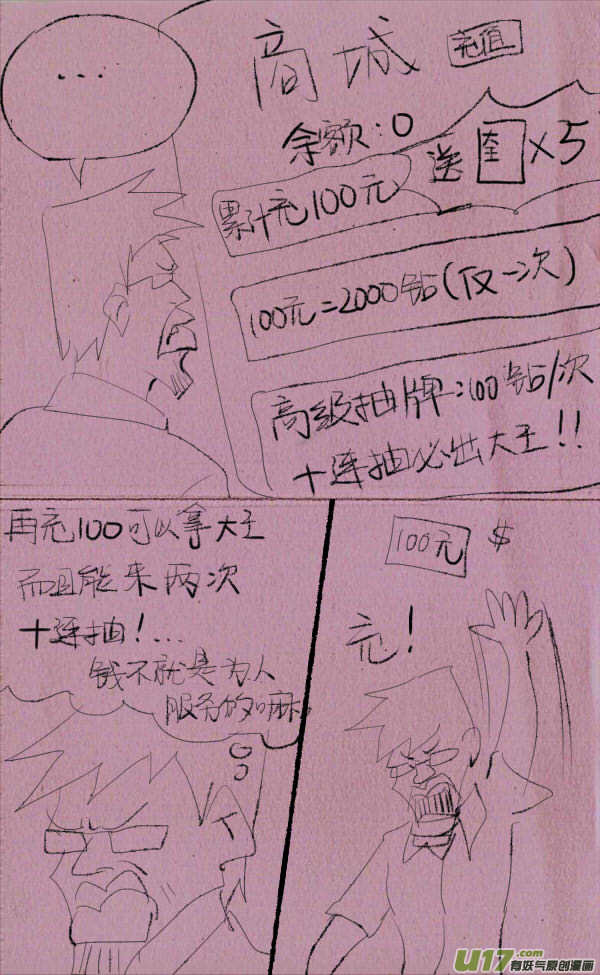 ...
商城
充值
余额:0
送奎×5
累计充100元
100元=2000钻(仅一次)
高级抽牌:100钻/次
十连抽必出大王!!
再充100可以拿大王
而且能来两次
十连抽!...
钱不就是为人
服务的嘛。
100元 $
充!
U17.com
有妖气原创漫画